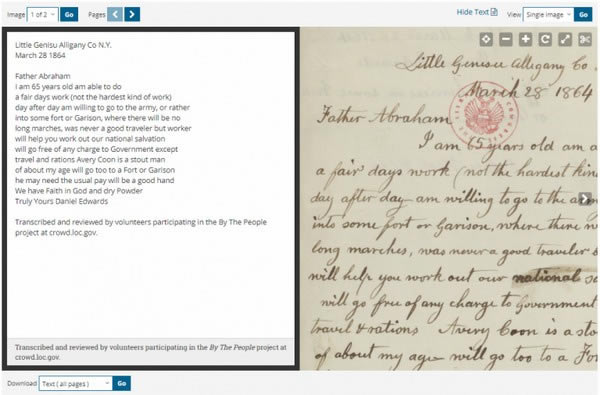 Image 1 of 2 Go Pages Hide Text View Single Image Go
Little Genisu Alligany Co N.Y.
March 28 1864
Father Abraham
I am 65 years old am able to do
a fair days work (not the hardest kind of work)
day after day am willing to go to the army, or rather
into some fort or Garison, where there will be no
long marches, was never a good traveler but worker
will help you work out our national salvation
will go free of any charge to Government except
travel and rations Avery Coon is a stout man
of about my age will go too to a Fort or Garison
he may need the usual pay will be a good hand
We have Faith in God and dry Powder
Truly Yours Daniel Edwards
Transcribed and reviewed by volunteers participating in the By The People
project at crowd.loc.gov.
Transcribed and reviewed by volunteers participating in the By The People project at
crowd.loc.gov.
Little Genisu Allegany Co.
March 28 1864
Father Abraham
I am 65 years old am a
a fair days work (not the hardest kin
day after day am willing to go to the arm
into some fort or Garison, where there w
long marches, was never a good traveler b
will help you work out our national sa
will go free of any charge to Government
travel & rations Avery Coon is a sto
of about my age will go too to a For
Download Text (all pages) Go